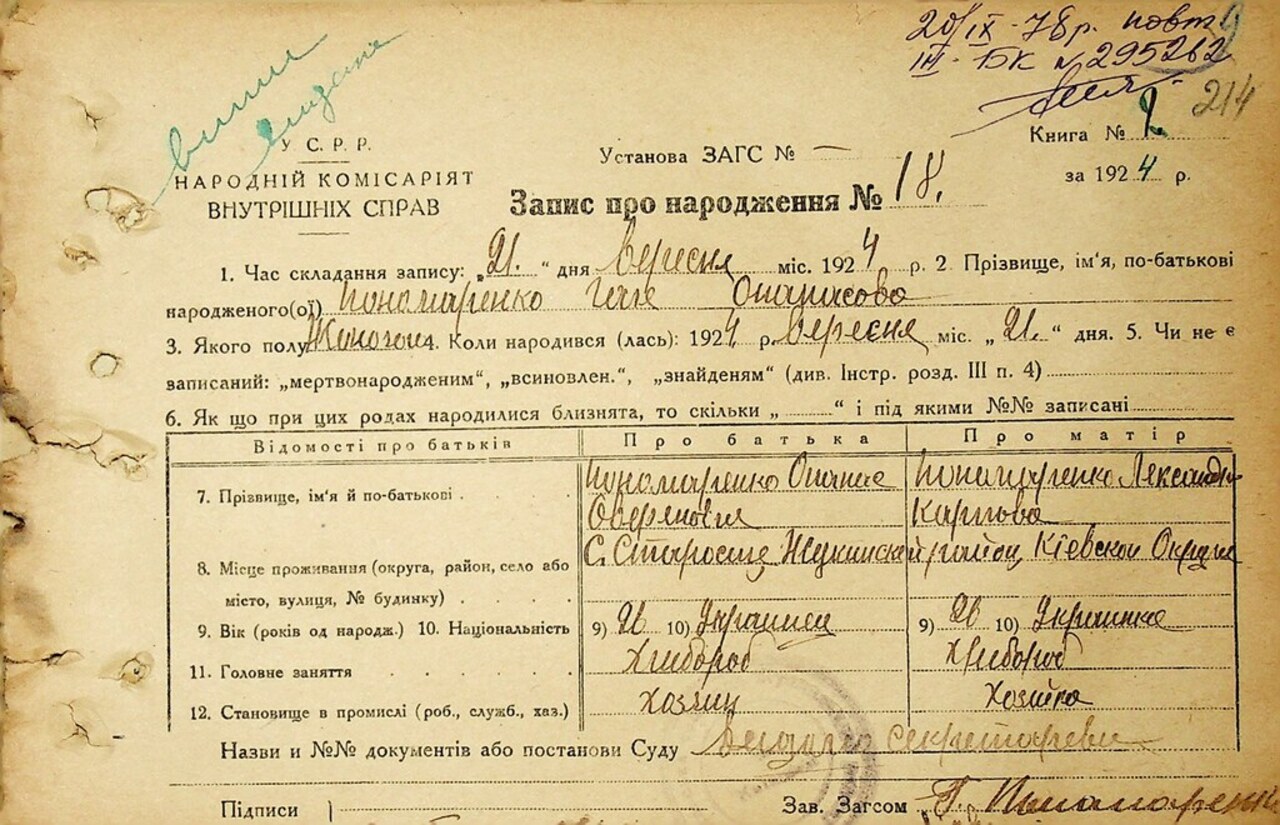 20/IX-78р. повт
III-БК №295262
214
У С. Р. Р.
НАРОДНІЙ КОМІСАРІЯТ
ВНУТРІШНІХ СПРАВ
Установа ЗАГС № —
Книга № 2
за 1924 р.
Запис про народження № 18.
1. Час складання запису: „21.“ дня вересня міс. 1924 р. 2. Прізвище, ім'я, по-батькові
народженого(ої) Пономаренко Опанасова
3. Якого полу Жіночои 4. Коли народився (лась): 1924 р. вересня міс. „21.“ дня. 5. Чи не є
записаний: „мертвонародженим“, „всиновлен.“, „знайденям“ (див. Інстр. розд. III п. 4)
6. Як що при цих родах народилися близнята, то скільки „ “ і під якими №№ записані
Відомості про батьків Про батька Про матір
7. Прізвище, ім'я й по-батькові Пономаренко Опанас Пономаренко Лександра
Оверкович Карпова
8. Місце проживання (округа, район, село або С. Старосілє Жукинской район, Кіевской Округи
місто, вулиця, № будинку)
9. Вік (років од народж.) 10. Національність 9) 26 10) Українец 9) 26 10) Українка
11. Головне заняття Хлибороб Хлибороб
12. Становище в промислі (роб., служб., хаз.) Хозяин Хозяйка
Назви и №№ документів або постанови Суду секретареви
Підписи Зав. Загсом Г. Пономаренко